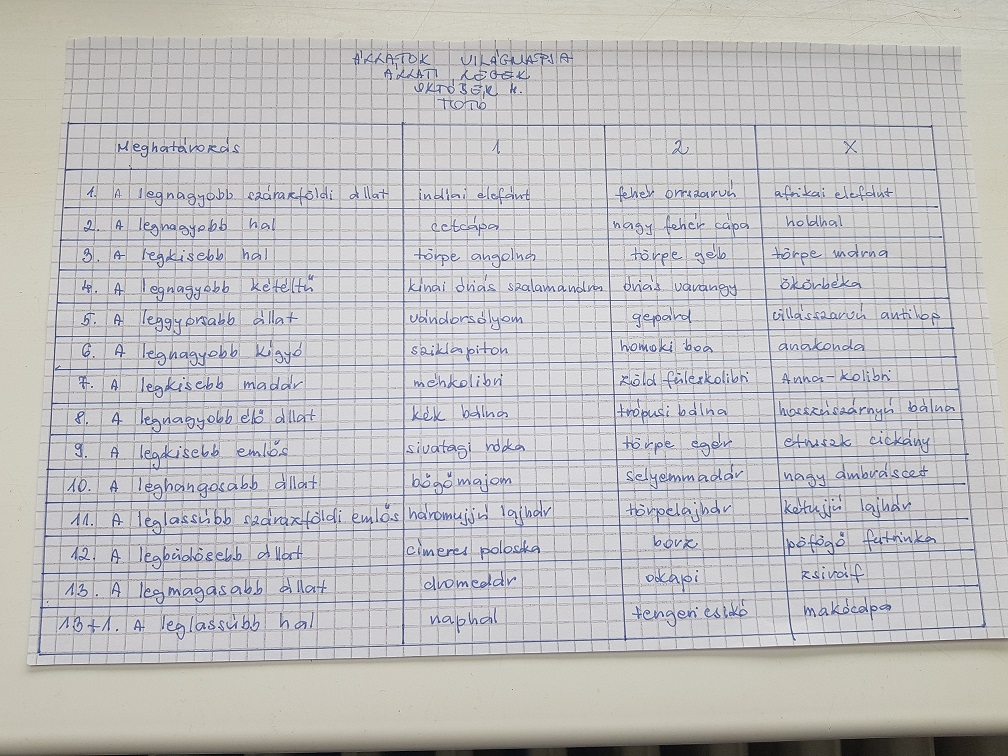 ÁLLATOK VILÁGNAPJA
ÁLLATI LÉGEK
OKTÓBER 4.
TOTÓ
Meghatározás 1 2 X
1. A legnagyobb szárazföldi állat indiai elefánt fehér orrszarvú afrikai elefánt
2. A legnagyobb hal cetcápa nagy fehér cápa holdhal
3. A legkisebb hal törpe angolna törpe géb törpe márna
4. A legnagyobb kétéltű kínai óriás szalamandra óriás varangy ökörbéka
5. A leggyorsabb állat vándorsólyom gepárd villásszarvú antilop
6. A legnagyobb kígyó sziklapiton homoki boa anakonda
7. A legkisebb madár méhkolibri zöld füleskolibri Anna-kolibri
8. A legnagyobb élő állat kék bálna trópusi bálna hosszúszárnyú bálna
9. A legkisebb emlős sivatagi róka törpe egér etruszk cickány
10. A leghangosabb állat bőgőmajom selyemmadár nagy ámbráscet
11. A leglassúbb szárazföldi emlős háromujjú lajhár törpelajhár kétujjú lajhár
12. A legbüdösebb állat címeres poloska borz pöfögő futrinka
13. A legmagasabb állat dromedár okapi zsiráf
13+1. A leglassúbb hal naphal tengeri csikó makócápa